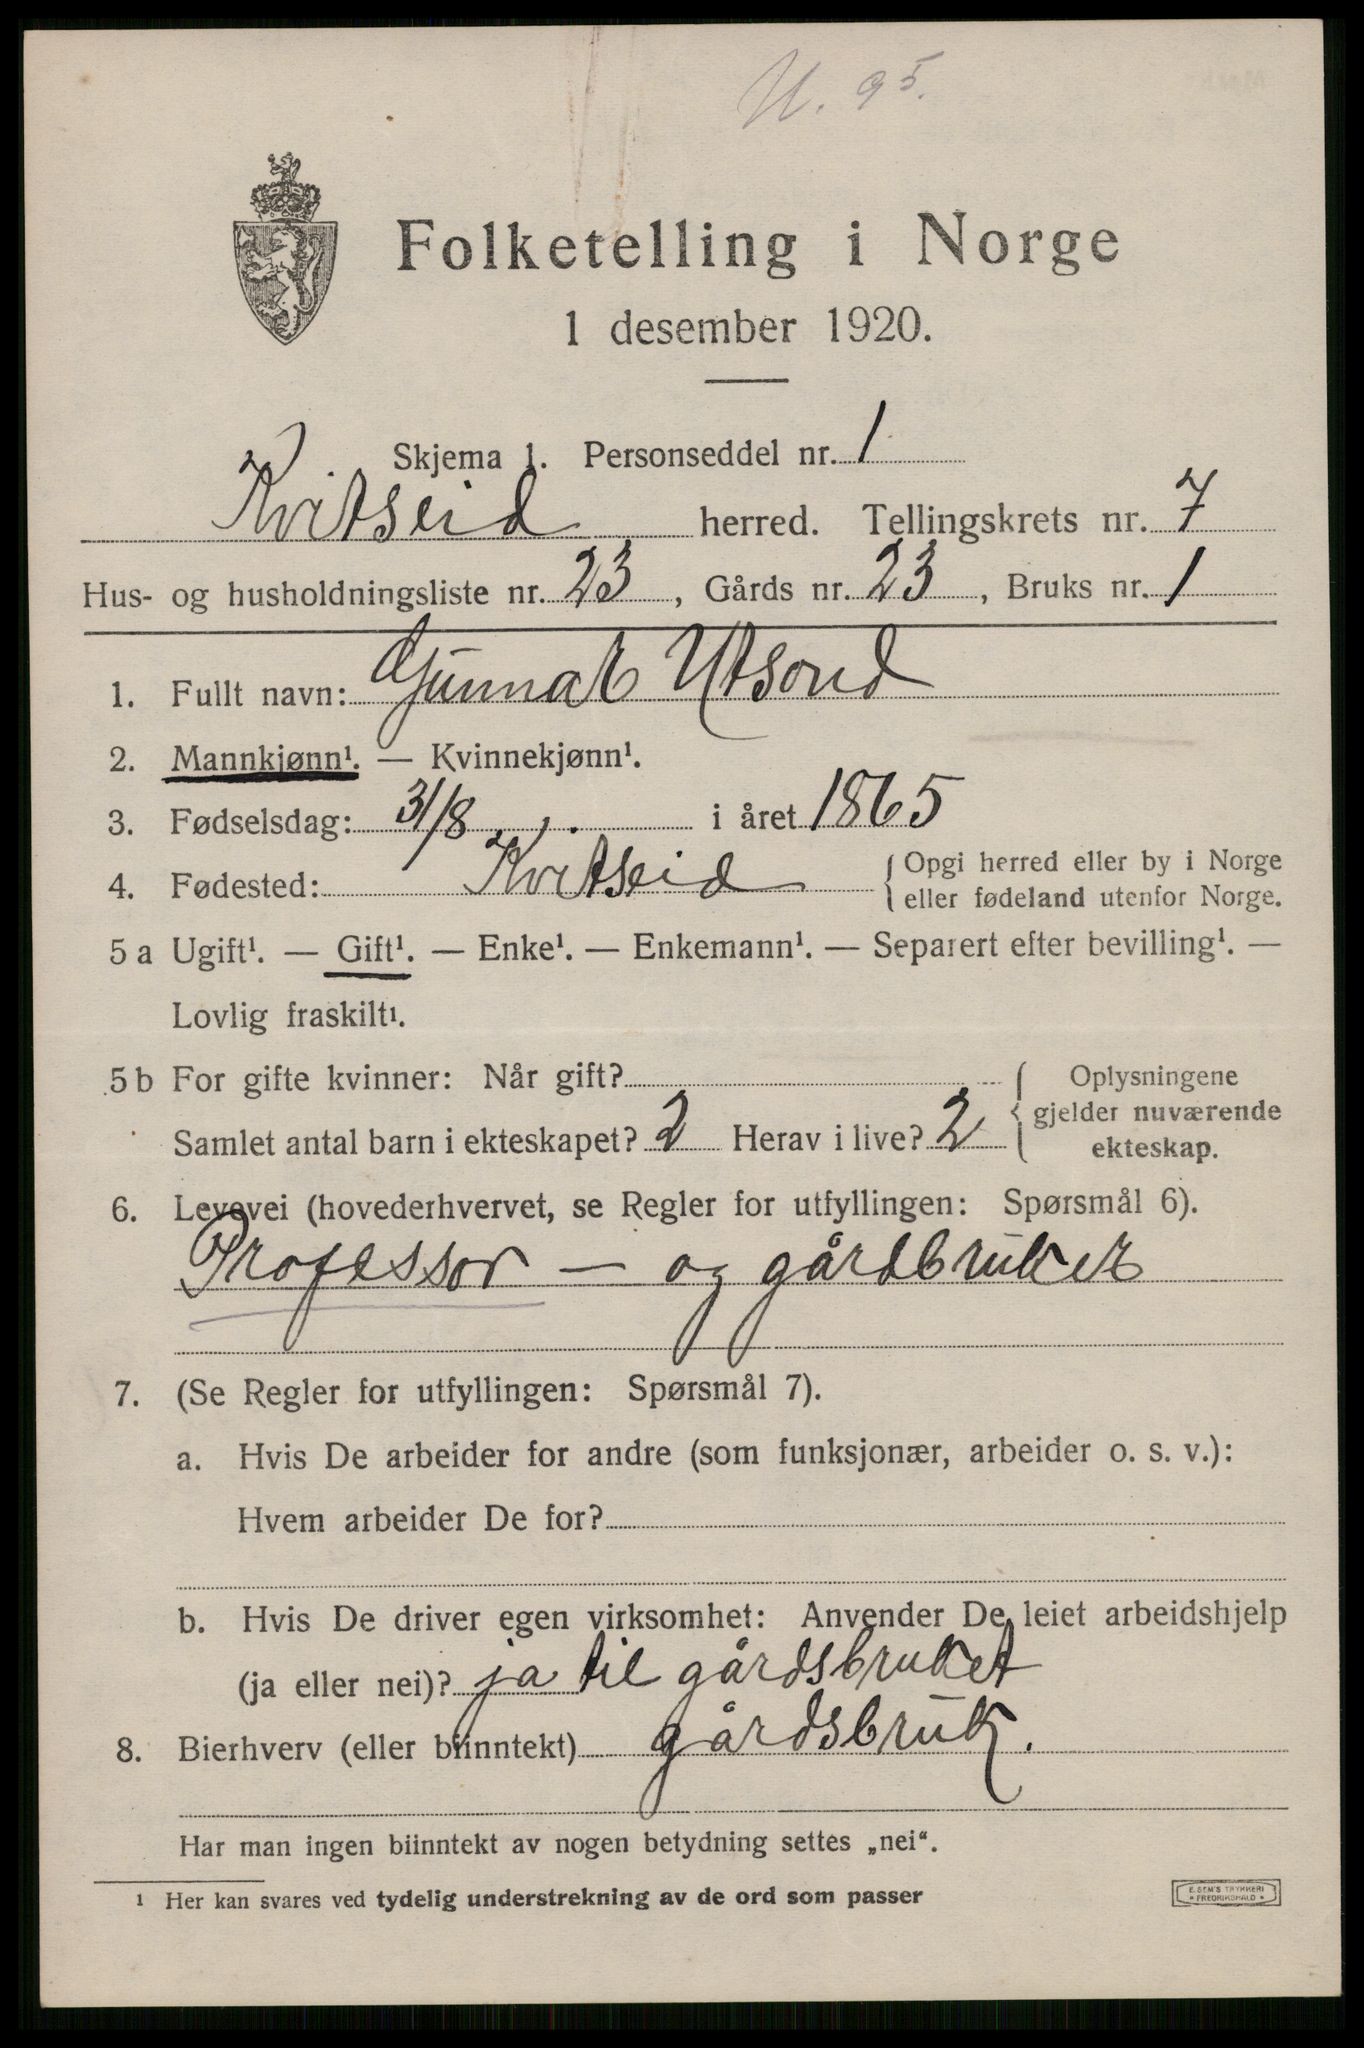 U. 95.
Folketelling i Norge
1 desember 1920.
Skjema 1. Personseddel nr. 1
Kvitseid herred. Tellingskrets nr. 7
Hus- og husholdningsliste nr. 23, Gårds nr. 23, Bruks nr. 1
1. Fullt navn: Gunnar Utsond
2. Mannkjønn¹. — Kvinnekjønn¹.
3. Fødselsdag: 31/8 i året 1865
4. Fødested: Kvitseid { Opgi herred eller by i Norge
eller fødeland utenfor Norge.
5 a Ugift¹. — Gift¹. — Enke¹. — Enkemann¹. — Separert efter bevilling¹. —
Lovlig fraskilt¹.
5 b For gifte kvinner: Når gift?
Samlet antal barn i ekteskapet? 2 Herav i live? 2
{ Oplysningene
gjelder nuværende
ekteskap.
6. Levevei (hovederhvervet, se Regler for utfyllingen: Spørsmål 6).
Professor — og gårdbruker
7. (Se Regler for utfyllingen: Spørsmål 7).
a. Hvis De arbeider for andre (som funksjonær, arbeider o. s. v.):
Hvem arbeider De for?
b. Hvis De driver egen virksomhet: Anvender De leiet arbeidshjelp
(ja eller nei)? ja til gårdsbruket
8. Bierhverv (eller biinntekt) gårdsbruk.
Har man ingen biinntekt av nogen betydning settes „nei“.
¹ Her kan svares ved tydelig understrekning av de ord som passer
E. SEM'S TRYKKERI
* FREDRIKSHALD *